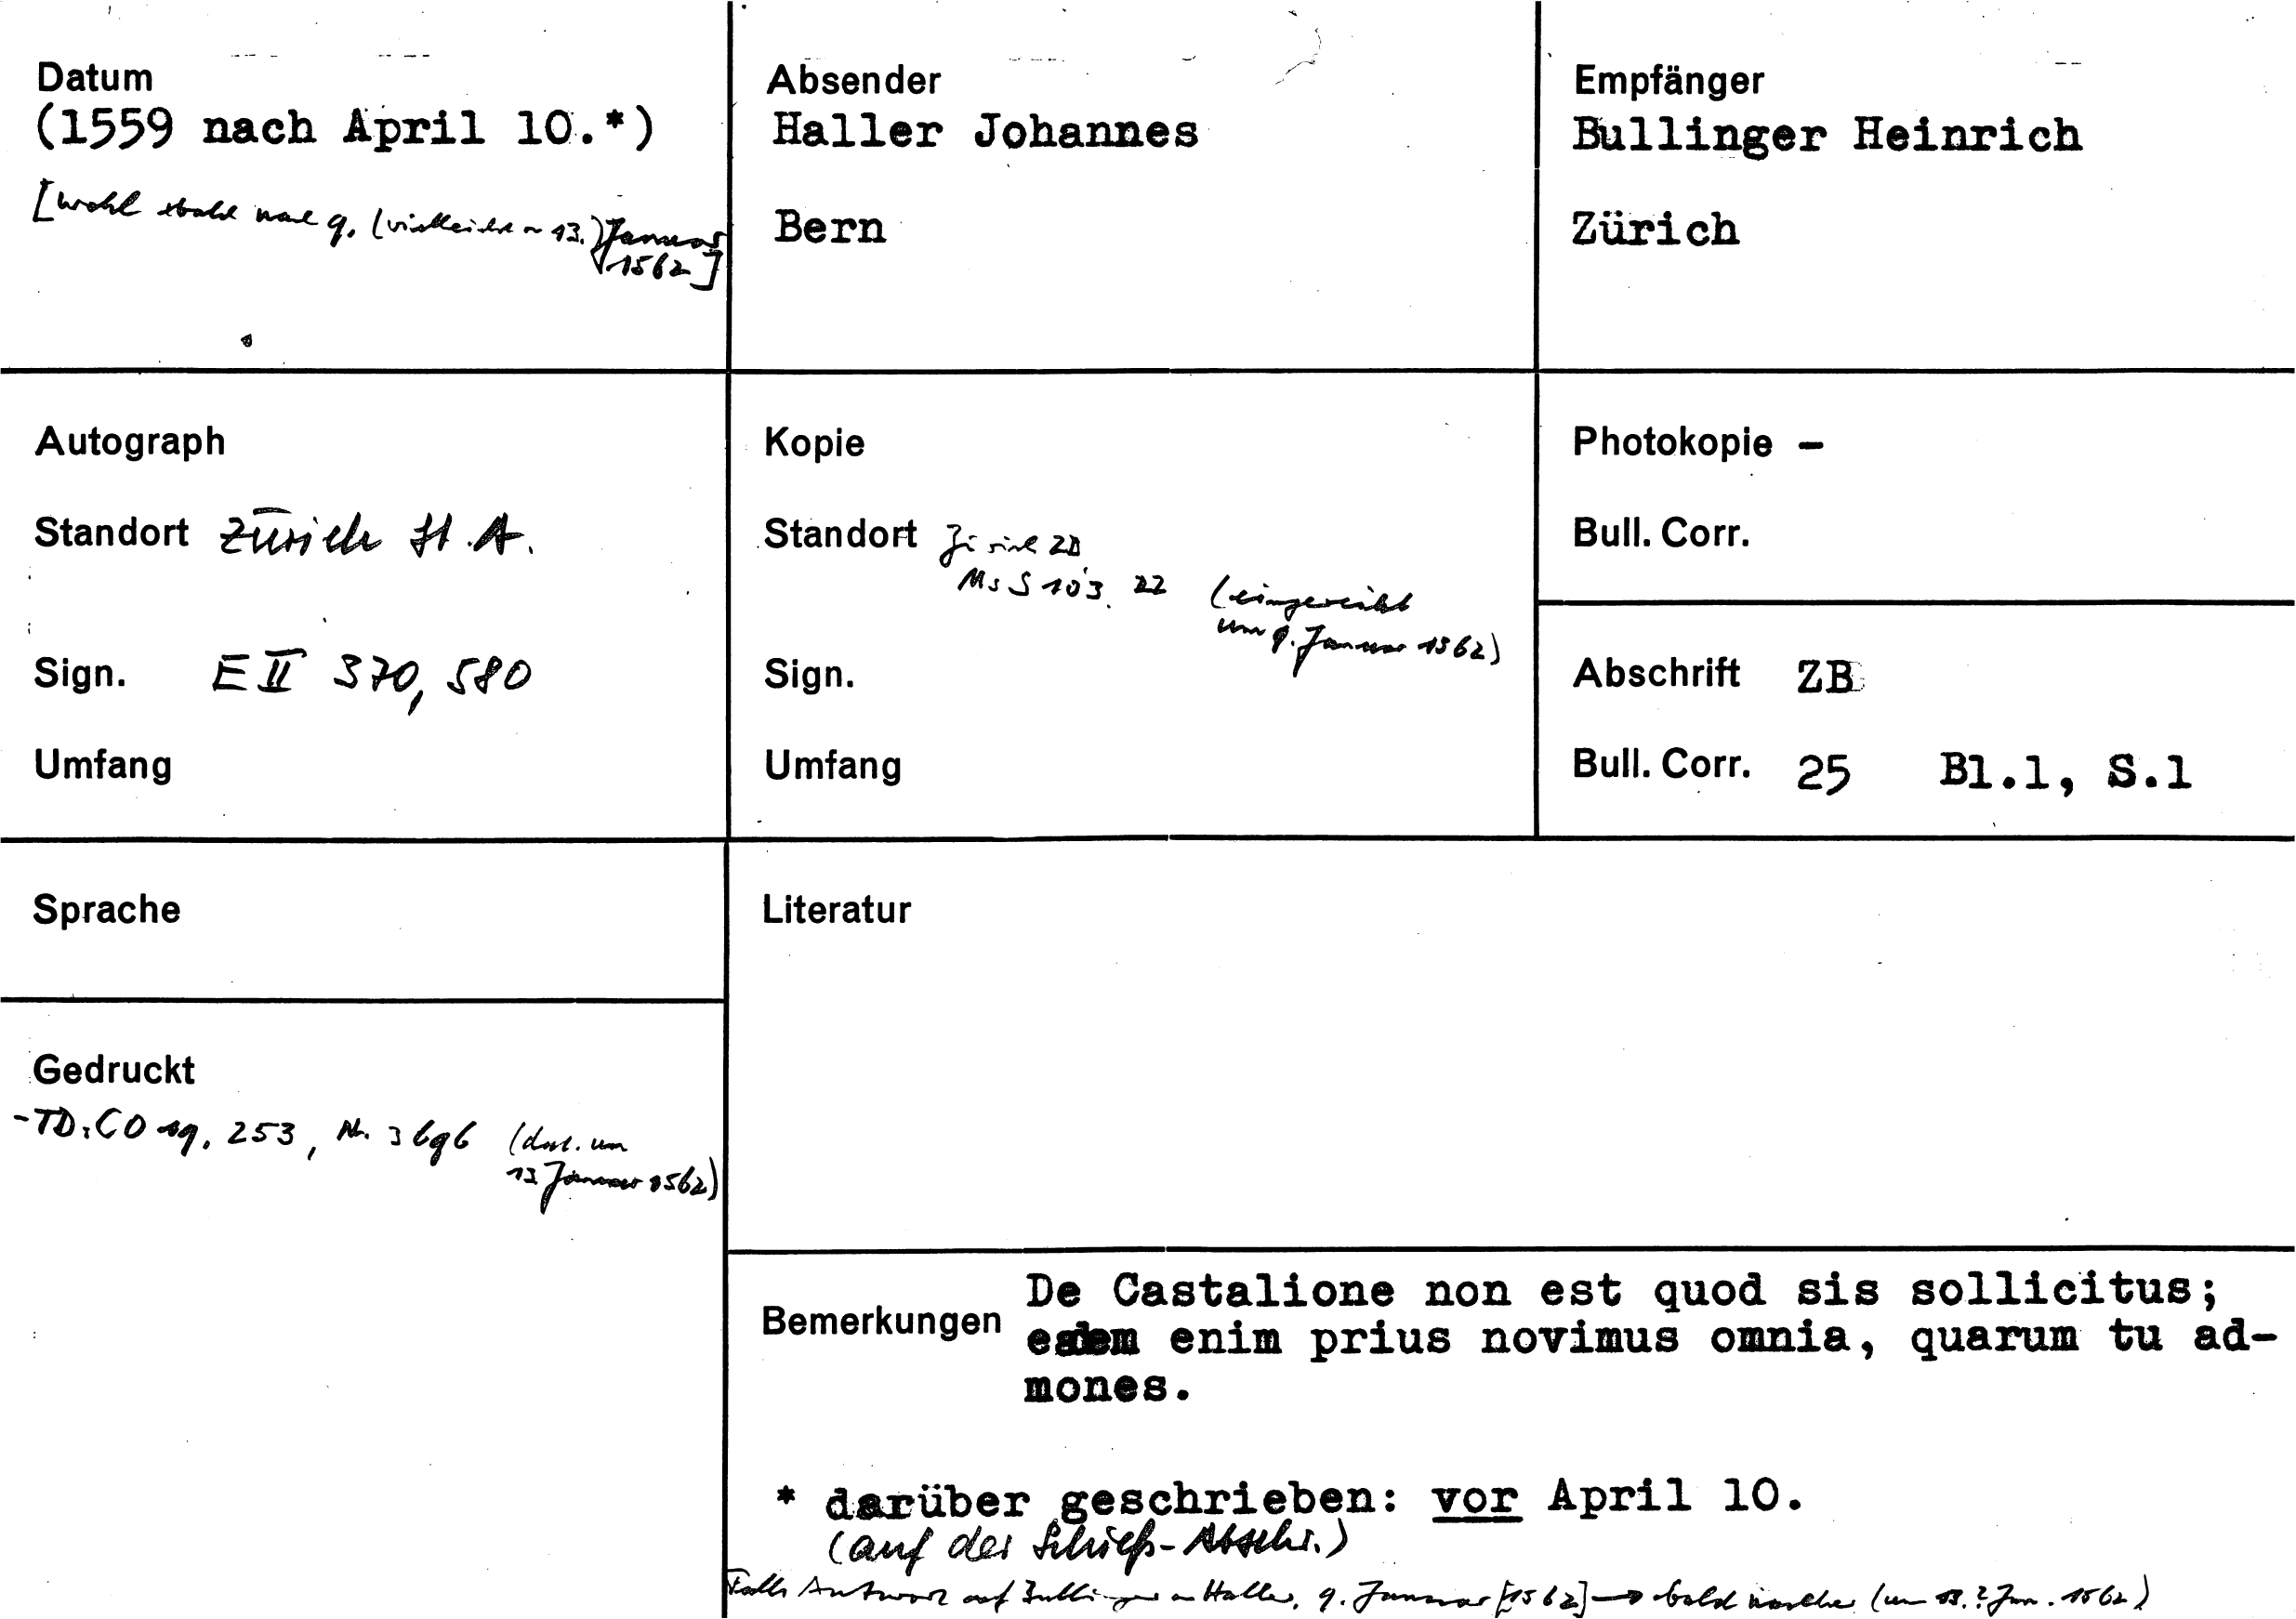 Datum
(1559 nach April 10.*)
[wohl bald nach 9. (vielleicht 13.) Januar
1562]
Absender
Haller Johannes
Bern
Empfänger
Bullinger Heinrich
Zürich
Autograph
Standort Zürich St.A.
Sign. E II 370, 580
Umfang
Kopie
Standort Zürich ZB,
Ms S 103, 22 (eingereiht
um 9. Januar 1562)
Sign.
Umfang
Photokopie –
Bull. Corr.
Abschrift ZB
Bull. Corr. 25 Bl.1, S.1
Sprache
Literatur
Gedruckt
-TD: CO 19, 253, Nr. 3696 (dat. um
13. Januar 1562)
Bemerkungen De Castalione non est quod sis sollicitus;
enim prius novimus omnia, quarum tu ad-
mones.
* darüber geschrieben: vor April 10.
(auf der Schieß-Abschr.)
Falls Antwort auf Bullinger an Haller, 9. Januar [1562] → bald nachher (um 13.? Jan. 1562)